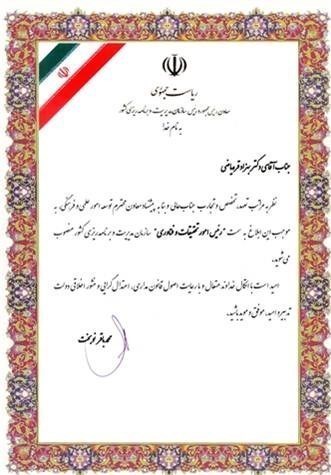 ریاست جمهوری
معاون رییس جمهور و رییس سازمان مدیریت و برنامه ریزی کشور
به نام خدا
جناب آقای دکتر بهزاد قره یاضی
نظر به مراتب تعهد، تخصص و تجارب جنابعالی و بنا به پیشنهاد معاون محترم توسعه امور علمی و فرهنگی، به
موجب این ابلاغ به سمت "رئیس امور تحقیقات و فناوری" سازمان مدیریت و برنامه ریزی کشور منصوب
می شوید.
امید است با اتکال خداوند متعال و با رعایت اصول قانون مداری، اعتدال گرایی و منشور اخلاقی دولت
تدبیر و امید، موفق و موید باشید.
محمد باقر نوبخت